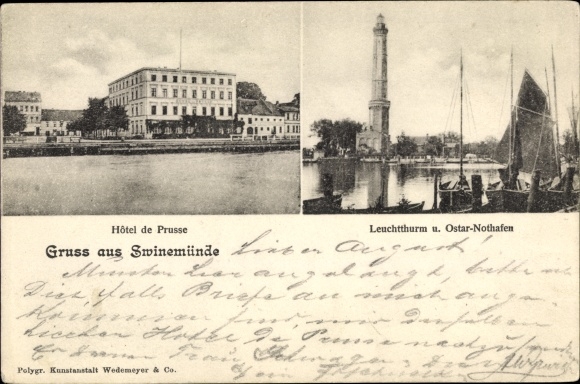 Hôtel de Prusse
Leuchtthurm u. Ostar-Nothafen
Gruss aus Swinemünde
Lieber August!
Munter hier angelangt, bitte ich
Dich, falls Briefe an mich ange-
kommen sind, mir dieselben
hierher Hotel de Prusse nachzu
Polygr. Kunstanstalt Wedemeyer & Co.